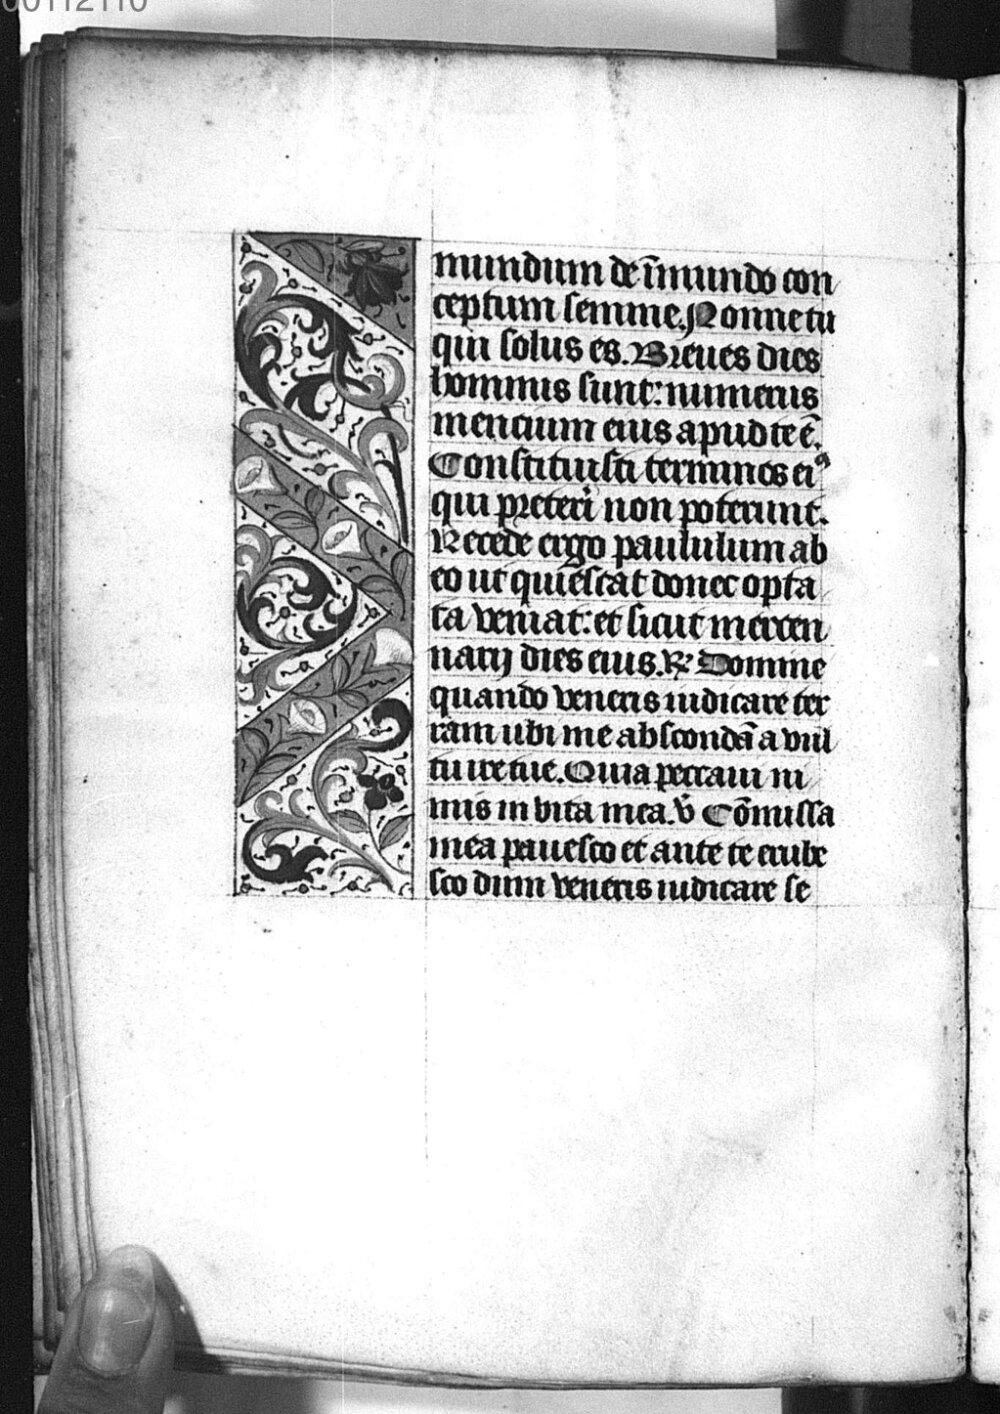 00112110
mundum de īmundo con
ceptum semine. Nonne tu
qui solus es. Breues dies
hominis sunt: numerus
mencium eius apud te ē.
Constituisti terminos eiꝰ
qui preteri̇ non poterunt.
Recede ergo paululum ab
eo ut quiescat donec opta
ta veniat: et sicut mercen
narij dies eius. ℟ Domine
quando veneris iudicare ter
ram ubi me abscondā a vul
tu ire tue. Quia peccaui ni
mis in vita mea. v̄ Cōmissa
mea pauesco et ante te erube
sco dum veneris iudicare se